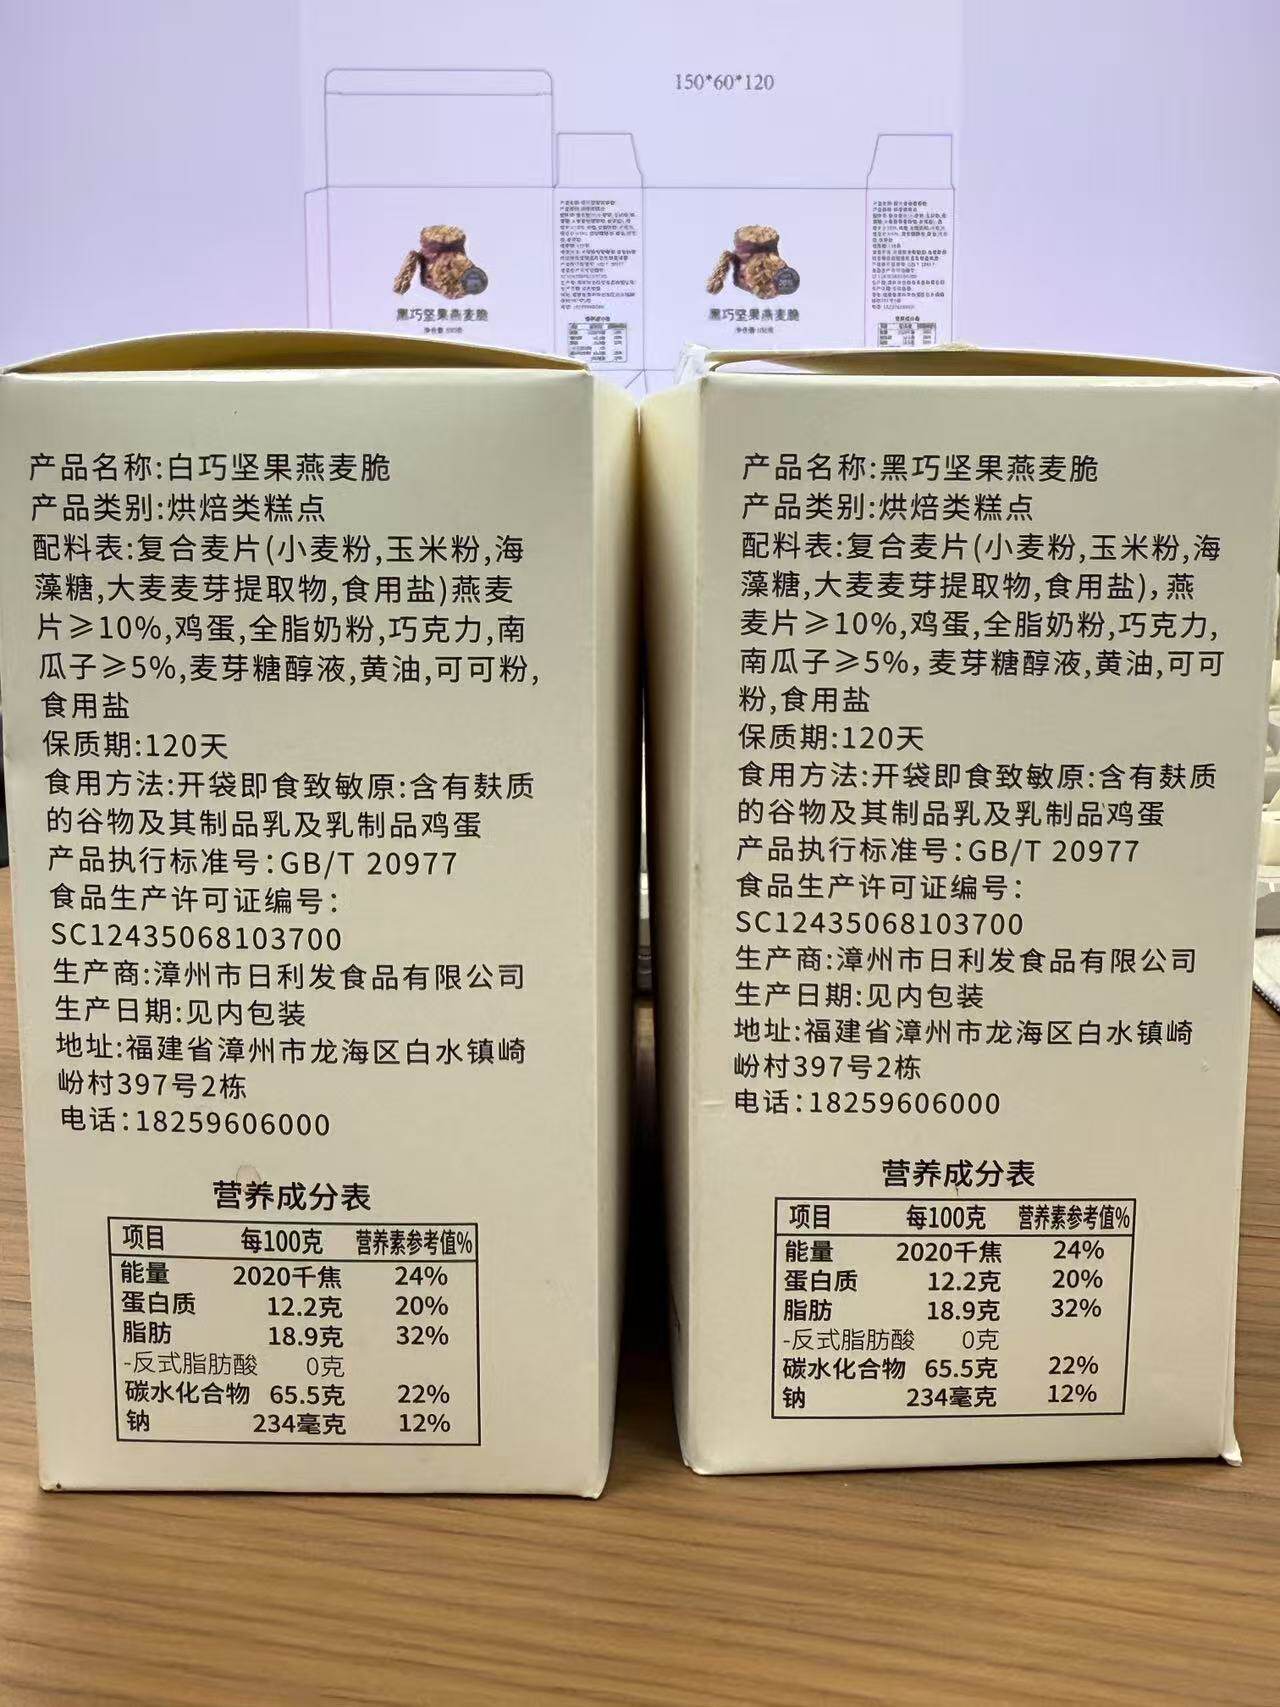 150*60*120
黑巧坚果燕麦脆
黑巧坚果燕麦脆
产品名称:白巧坚果燕麦脆
产品类别:烘焙类糕点
配料表:复合麦片(小麦粉,玉米粉,海
藻糖,大麦麦芽提取物,食用盐)燕麦
片≥10%,鸡蛋,全脂奶粉,巧克力,南
瓜子≥5%,麦芽糖醇液,黄油,可可粉,
食用盐
保质期:120天
食用方法:开袋即食致敏原:含有麸质
的谷物及其制品乳及乳制品鸡蛋
产品执行标准号:GB/T 20977
食品生产许可证编号:
SC12435068103700
生产商:漳州市日利发食品有限公司
生产日期:见内包装
地址:福建省漳州市龙海区白水镇崎
㟃村397号2栋
电话:18259606000
营养成分表
项目 每100克 营养素参考值%
能量 2020千焦 24%
蛋白质 12.2克 20%
脂肪 18.9克 32%
-反式脂肪酸 0克
碳水化合物 65.5克 22%
钠 234毫克 12%
产品名称:黑巧坚果燕麦脆
产品类别:烘焙类糕点
配料表:复合麦片(小麦粉,玉米粉,海
藻糖,大麦麦芽提取物,食用盐),燕
麦片≥10%,鸡蛋,全脂奶粉,巧克力,
南瓜子≥5%,麦芽糖醇液,黄油,可可
粉,食用盐
保质期:120天
食用方法:开袋即食致敏原:含有麸质
的谷物及其制品乳及乳制品鸡蛋
产品执行标准号:GB/T 20977
食品生产许可证编号:
SC12435068103700
生产商:漳州市日利发食品有限公司
生产日期:见内包装
地址:福建省漳州市龙海区白水镇崎
㟃村397号2栋
电话:18259606000
营养成分表
项目 每100克 营养素参考值%
能量 2020千焦 24%
蛋白质 12.2克 20%
脂肪 18.9克 32%
-反式脂肪酸 0克
碳水化合物 65.5克 22%
钠 234毫克 12%